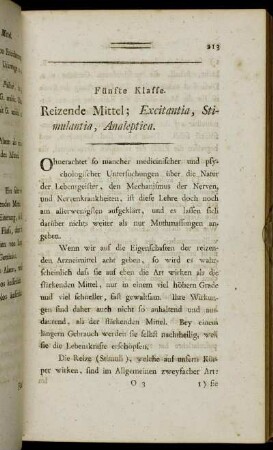 213
Fünfte Klasse.
Reizende Mittel; Excitantia, Sti-
mulantia, Analeptica.
Ohnerachtet so mancher medicinischer und psy-
chologischer Untersuchungen über die Natur
der Lebensgeister, den Mechanismus der Nerven,
und Nervenkrankheiten, ist diese Lehre doch noch
am allerwenigsten aufgeklärt, und es lassen sich
darüber nichts weiter als nur Muthmassungen an-
geben.
Wenn wir auf die Eigenschaften der reizen-
den Arzneimittel acht geben, so wird es wahr-
scheinlich dass sie auf eben die Art wirken als die
stärkenden Mittel, nur in einem viel höhern Grade
und viel schneller, fast gewaltsam. Ihre Wirkun-
gen sind daher auch nicht so anhaltend und aus-
daurend, als der stärkenden Mittel. Bey einem
längern Gebrauch werden sie selbst nachtheilig, weil
sie die Lebenskräfte erschöpfen.
Die Reize (Stimuli), welche auf unsern Kör-
per wirken, sind im Allgemeinen zweyfacher Art:
O 3 1) sie